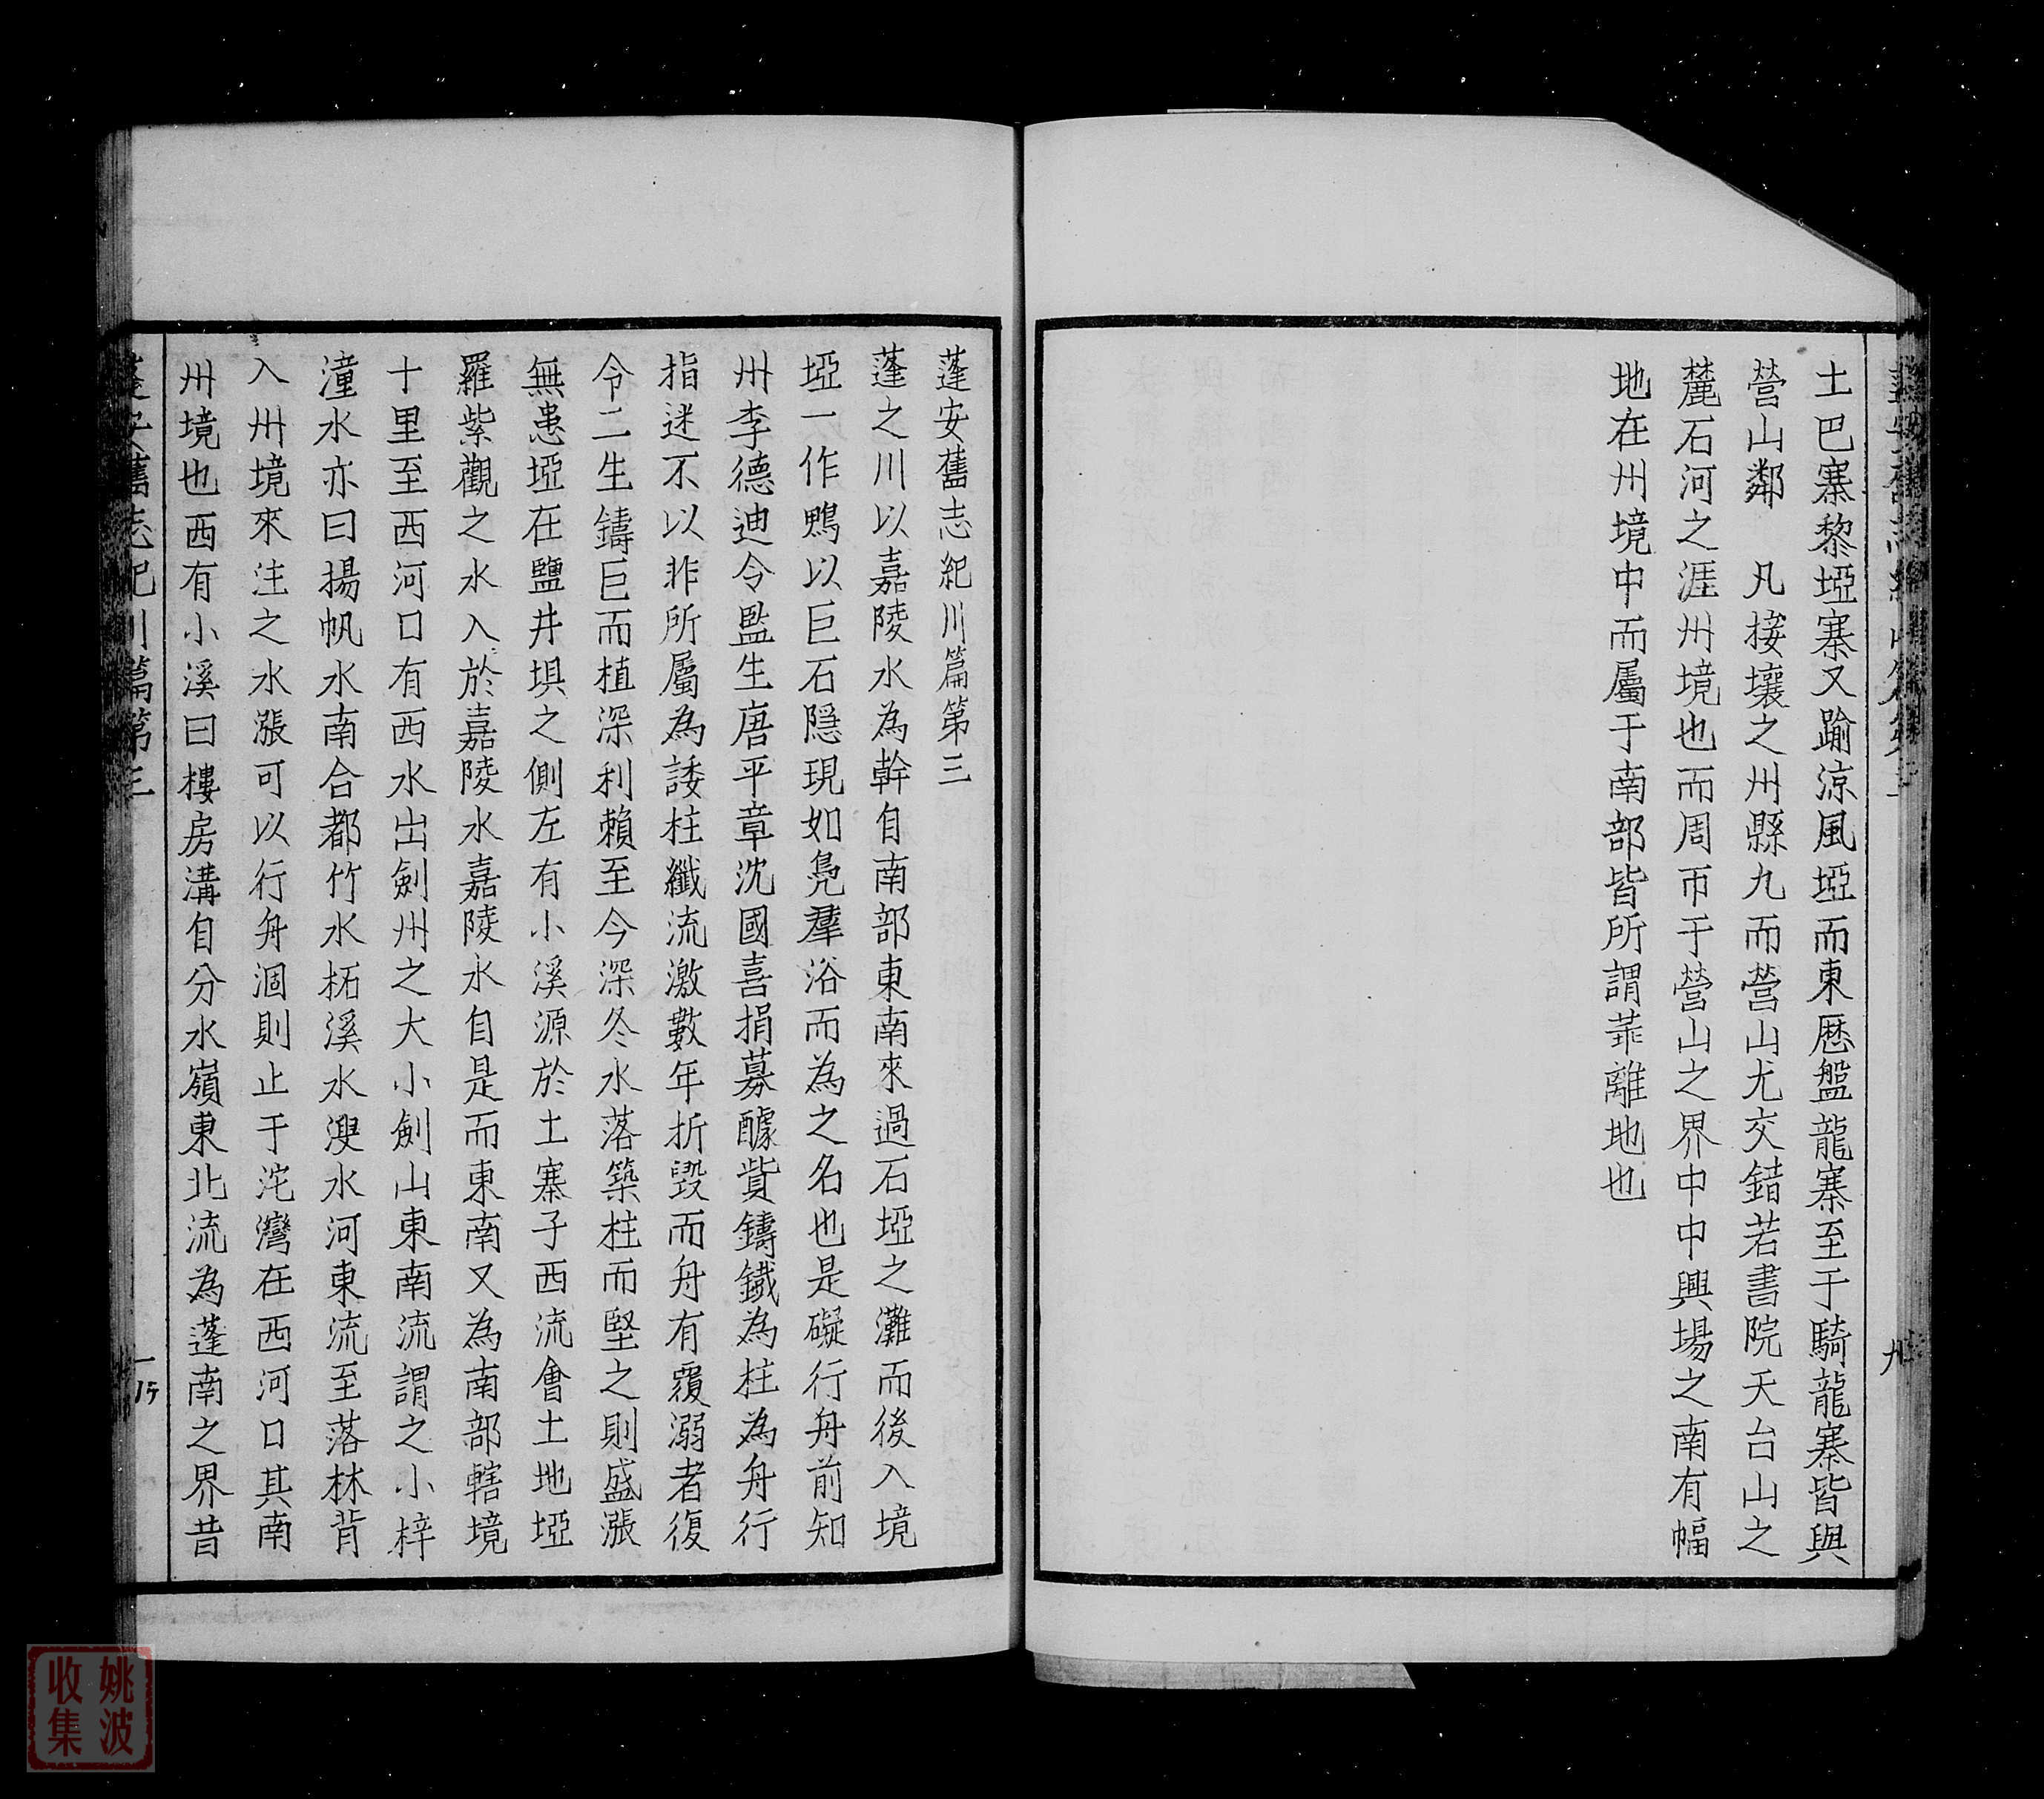 土巴寨黎埡寨又踰涼風埡而東歷盤龍寨至于騎龍寨皆與
營山鄰　凡接壤之州縣九而營山尤交錯若書院天台山之
麓石河之涯州境也而周帀于營山之界中中興場之南有幅
地在州境中而屬于南部皆所謂華離地也
九
蓬安舊志紀川篇第三
蓬之川以嘉陵水為幹自南部東南來過石埡之灘而後入境
埡一作鴨以巨石隱現如鳧羣浴而為之名也是礙行舟前知
州李德迪令監生唐平章沈國喜捐募醵貲鑄鐵為柱為舟行
指迷不以非所屬為諉柱纖流激數年折毀而舟有覆溺者復
令二生鑄巨而植深利賴至今深冬水落築柱而堅之則盛漲
無患埡在鹽井垻之側左有小溪源於土寨子西流會土地埡
羅紫觀之水入於嘉陵水嘉陵水自是而東南又為南部轄境
十里至西河口有西水出劍州之大小劍山東南流謂之小梓
潼水亦曰揚帆水南合都竹水柘溪水溲水河東流至落林背
入州境來注之水漲可以行舟涸則止于沱灣在西河口其南
州境也西有小溪曰樓房溝自分水嶺東北流為蓬南之界昔
蓬安舊志紀川篇第三
姚波
收集